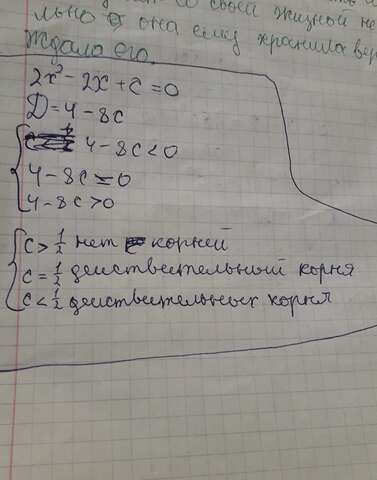 своей жизной не
льно она ему хранила вер
ждало его.
2x² - 2x + c = 0
D = 4 - 8c
4 - 8c < 0
4 - 8c = 0
4 - 8c > 0
c > 1/2 нет корней
c = 1/2 действительный корня
c < 1/2 действительных корня